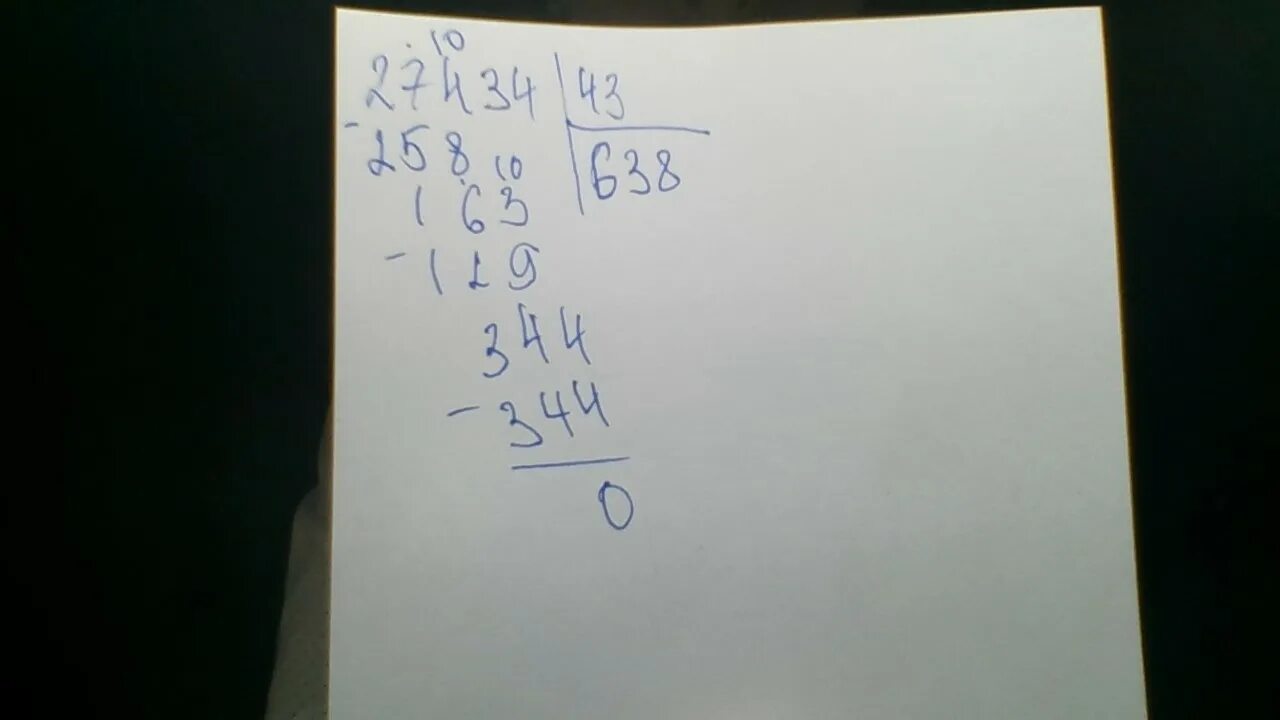 10
27434 43
- 258 638
10
163
- 129
344
- 344
0